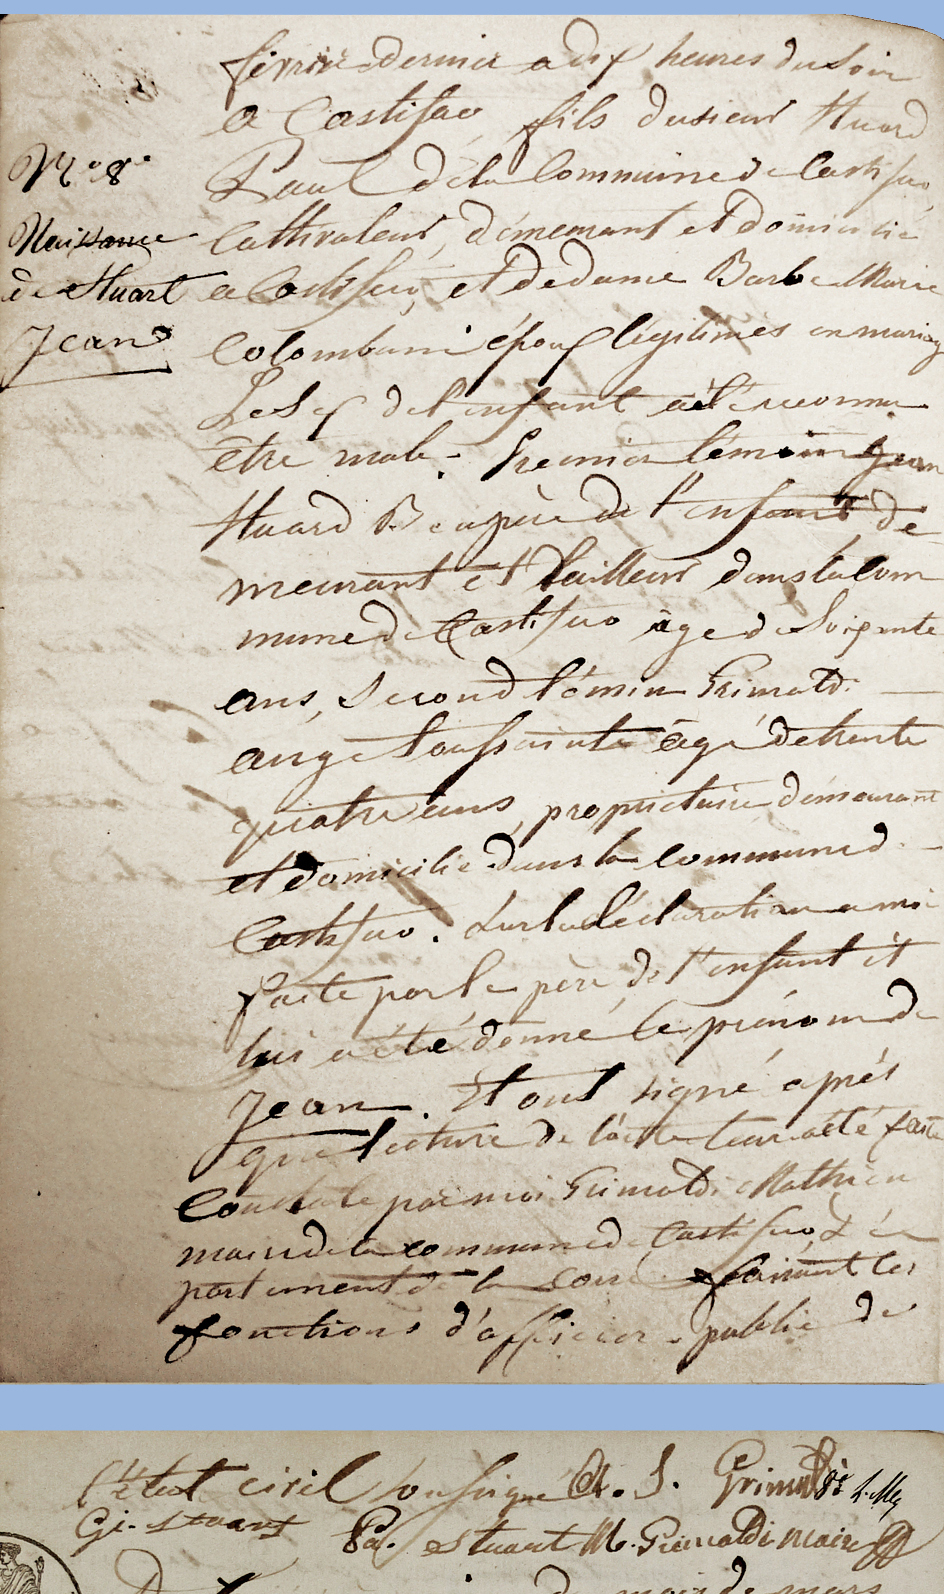 N.o 8.o
Naissance
de Stuart
Jean
février dernier a dix heures du soir
a Castifao, fils du sieur Stuard
Paul de la Commune de Castifao
Cultivateur, démeurant et domicilié
a Castifao, et de dame Barbe Marie
Colombani époux légitimes en mariag
Le Sex de l'enfant a été reconnu
être male. Premier témoin Jean
Stuard Beaupère de l'enfant de
meurant et tailleur dans la Com
mune de Castifao âge de Soixante
ans, Second témin Grimaldi
ange toussainte âgé de trente
quatre ans, propriétaire démeurant
et domicilié dans la commune de
Castifao. Sur la déclaration a moi
faite par le père de l'enfant et
lui a été donné le prénom de
Jean. Et ont signé après
que lecture de l'acte leur a été faite
Constaté par moi Grimaldi Mathieu
maire de la commune de Castifao, dé
partement de la Corse faisant les
fonctions d'officier public de
l'état civil soussigné A. S. Grimaldi
Gi. Stuart Pa. Stuart M. Grimaldi maire
du mois de mars